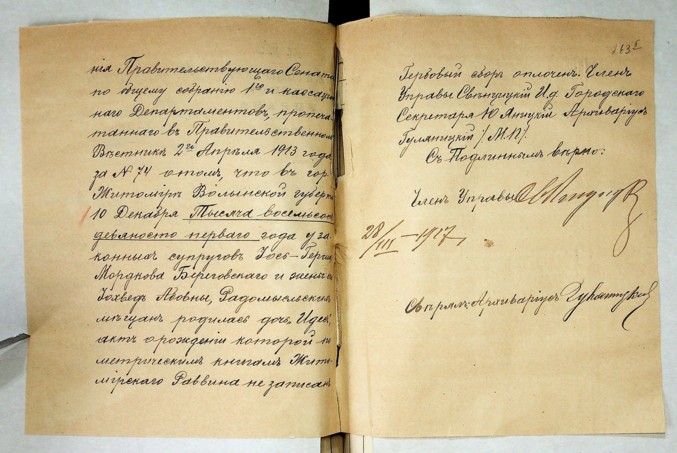 нія Правительствующаго Сената
по общему собранію 1го и кассаціон
наго Департаментовъ, пропеча
таннаго въ Правительственномъ
Вѣстникѣ 2го Апрѣля 1913 года
за № 74 о томъ, что въ гор.
Житомірѣ Волынской губерніи
10 Декабря Тысяча восемьсотъ
девяносто перваго года у за
конныхъ супруговъ
Мордкова Береговскаго и жены его
Авовны, Радомысльскихъ
мѣщанъ родилась дочь Идесъ,
актъ о рожденіи которой по
метрическимъ книгамъ Жито
мірскаго Раввина не записанъ
Гербовый сборъ оплоченъ. Членъ
Управы И.д. Городского
Секретаря Ю. Яницкій Архиваріусъ
Гуляницкій /М.П./.
Съ Подлиннымъ вѣрно:
Членъ Управы
28/III – 1917
Свѣрялъ: Архиваріусъ